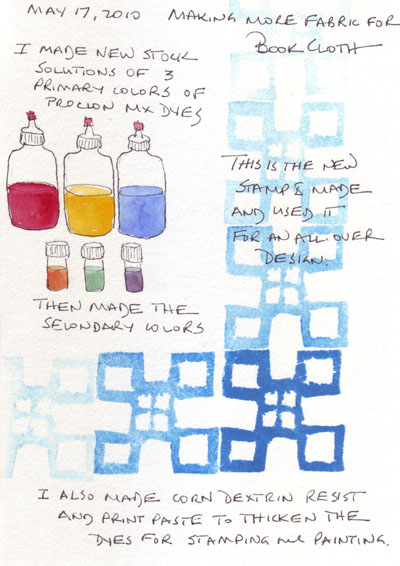 MAY 17, 2010 MAKING MORE FABRIC FOR
BOOK CLOTH
I MADE NEW STOCK
SOLUTIONS OF 3
PRIMARY COLORS OF
PROCION MX DYES
THIS IS THE NEW
STAMP I MADE
AND USED IT
FOR AN ALL.OVER
DESIGN.
THEN MADE THE
SECONDARY COLORS
I ALSO MADE CORN DEXTRIN RESIST
AND PRINT PASTE TO THICKEN THE
DYES FOR STAMPING PAINTING.